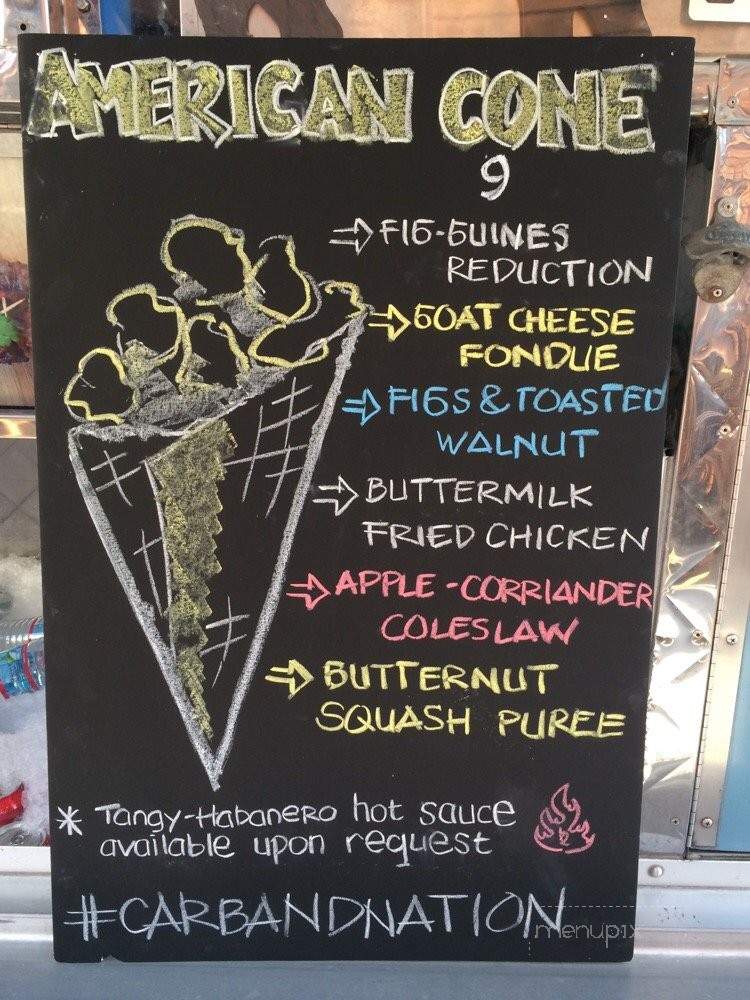 AMERICAN CONE
9
⇒ FIG-GUINES
REDUCTION
⇒ GOAT CHEESE
FONDUE
⇒ FIGS & TOASTED
WALNUT
⇒ BUTTERMILK
FRIED CHICKEN
⇒ APPLE-CORRIANDER
COLESLAW
⇒ BUTTERNUT
SQUASH PUREE
* Tangy-Habanero hot sauce
available upon request
#CARBANDNATION
menupix